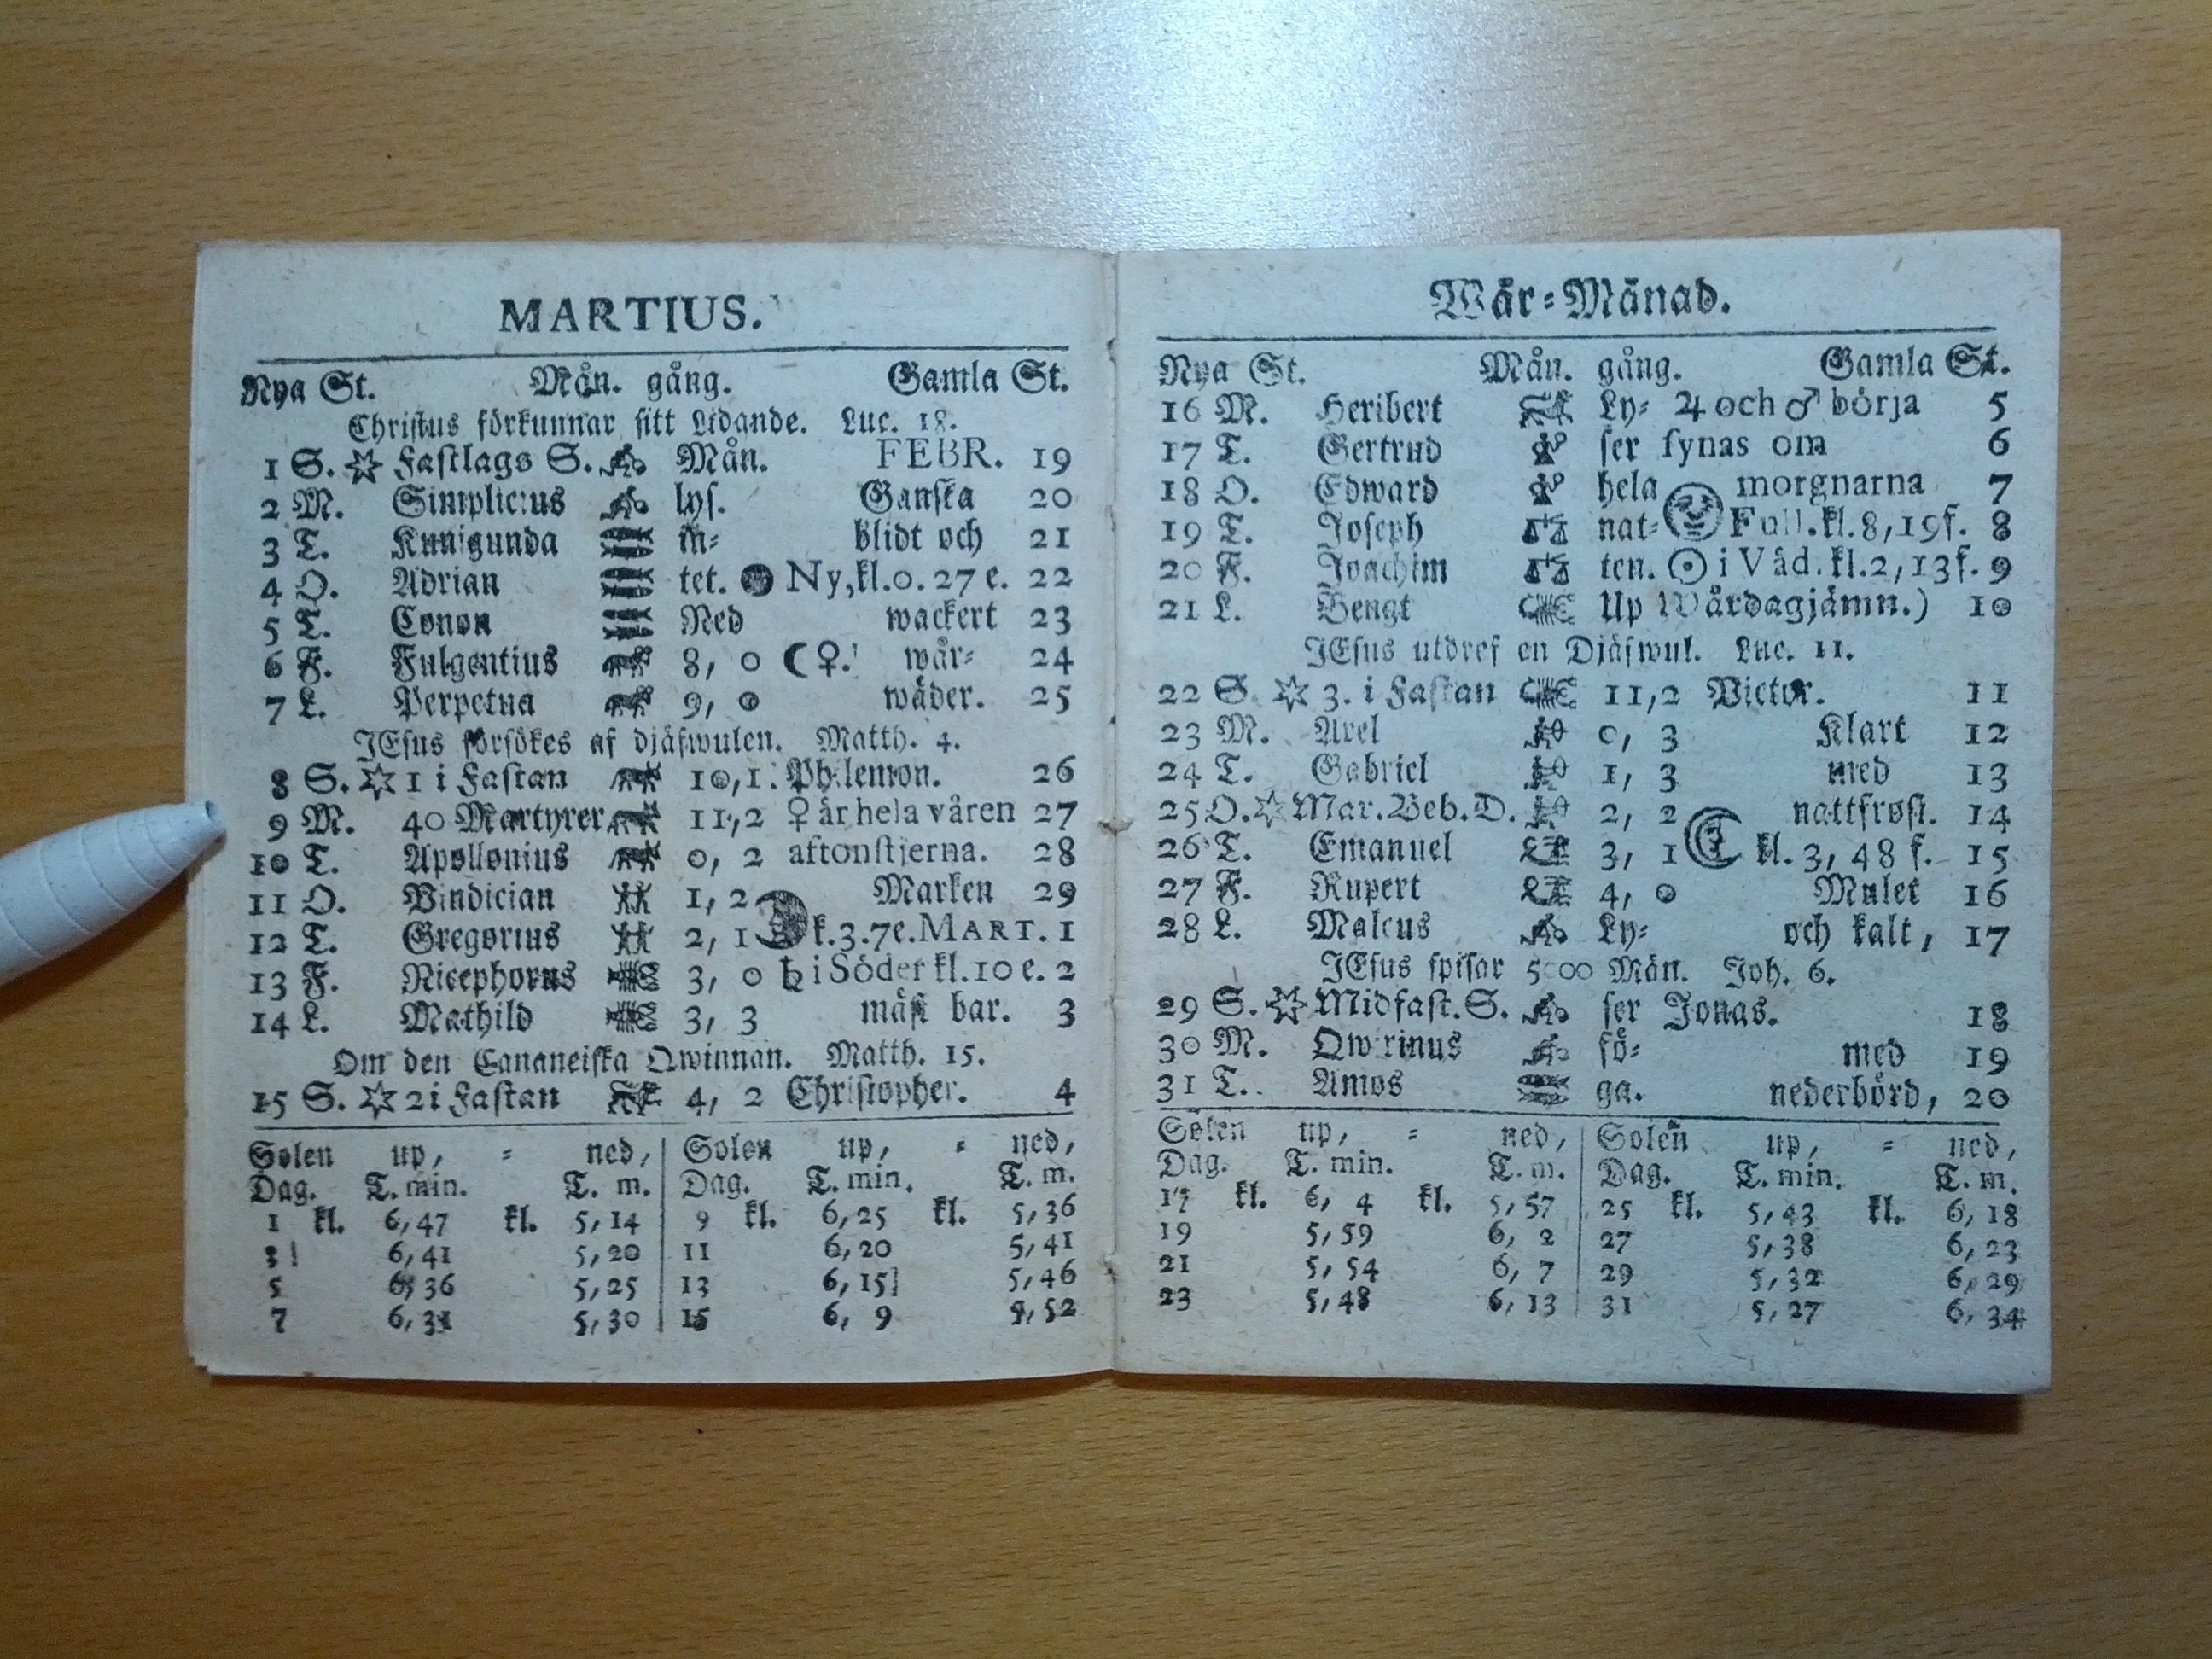 MARTIUS.
Nya St. Mån. gång. Gamla St.
Christus förkunnar sitt Lidande. Luc. 18.
1 S. Fastlags S. Mån. FEBR. 19
2 M. Simplicius lys. Ganska 20
3 T. Kunigunda in= blidt och 21
4 O. Adrian tet. Ny, kl. 0. 27 e. 22
5 T. Conon Ned wackert 23
6 F. Fulgentius 8, 0 ☾♀. wår= 24
7 L. Perpetua 9, 0 wäder. 25
JEsus försökes af djäfwulen. Matth. 4.
8 S. 1 i Fastan 10, 1. Philemon. 26
9 M. 40 Martyrer 11, 2 ♀ är hela våren 27
10 T. Apollonius 0, 2 aftonstjerna. 28
11 O. Vindician 1, 2 Marken 29
12 T. Gregorius 2, 1 k. 3. 7 e. MART. 1
13 F. Nicephorus 3, 0 ♄ i Söder kl. 10 e. 2
14 L. Mathild 3, 3 mäst bar. 3
Om den Cananeiska Qwinnan. Matth. 15.
15 S. 2 i Fastan 4, 2 Christopher. 4
Solen up, = ned, Solen up, = ned,
Dag. T. min. T. m. Dag. T. min. T. m.
1 kl. 6, 47 kl. 5, 14 9 kl. 6, 25 kl. 5, 36
3 6, 41 5, 20 11 6, 20 5, 41
5 6, 36 5, 25 13 6, 15 5, 46
7 6, 31 5, 30 15 6, 9 5, 52
Wår=Månad.
Nya St. Mån. gång. Gamla St.
16 M. Heribert Ly= ♃ och ♂ börja 5
17 T. Gertrud ser synas om 6
18 O. Edward hela morgnarna 7
19 T. Joseph nat= Full. kl. 8, 19 f. 8
20 F. Joachim ten. ☉ i Väd. kl. 2, 13 f. 9
21 L. Bengt Up Wårdagjämn.) 10
JEsus utdref en Djäfwul. Luc. 11.
22 S. 3. i Fastan 11, 2 Victor. 11
23 M. Axel 0, 3 Klart 12
24 T. Gabriel 1, 3 med 13
25 O. Mar. Beb. D. 2, 2 nattfrost. 14
26 T. Emanuel 3, 1 kl. 3, 48 f. 15
27 F. Rupert 4, 0 Mulet 16
28 L. Malcus Ly= och kalt, 17
JEsus spisar 5000 Män. Joh. 6.
29 S. Midfast. S. ser Jonas. 18
30 M. Qwirinus fö= med 19
31 T. Amos ga. nederbörd, 20
Solen up, = ned, Solen up, = ned,
Dag. T. min. T. m. Dag. T. min. T. m.
17 kl. 6, 4 kl. 5, 57 25 kl. 5, 43 kl. 6, 18
19 5, 59 6, 2 27 5, 38 6, 23
21 5, 54 6, 7 29 5, 32 6, 29
23 5, 48 6, 13 31 5, 27 6, 34